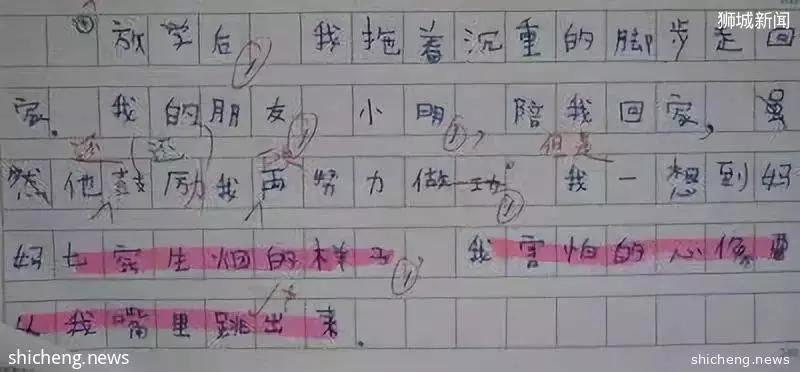 狮城新闻
放学后，我拖着沉重的脚步走回
家。我的朋友，小明，陪我回家，虽
还 还 但是
然他鼓励我再努力做功，我一想到妈
妈七窍生烟的样子，我害怕的心像要
从我嘴里跳出来。
shicheng.news
shicheng.news